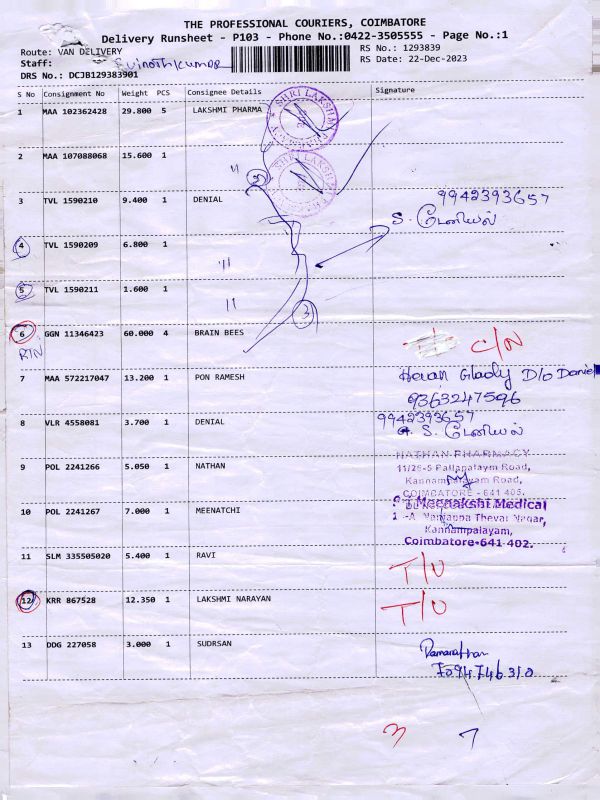 THE PROFESSIONAL COURIERS, COIMBATORE
Delivery Runsheet - P103 - Phone No.:0422-3505555 - Page No.:1
Route: VAN DELIVERY RS No.: 1293839
Staff: RS Date: 22-Dec-2023
DRS No.: DCJB129383901
S No Consignment No Weight PCS Consignee Details Signature
1 MAA 102362428 29.800 5 LAKSHMI PHARMA
2 MAA 107088068 15.600 1 "
3 TVL 1590210 9.400 1 DENIAL 9942393657
S. டேனியல்
4 TVL 1590209 6.800 1 "
5 TVL 1590211 1.600 1 "
3
6 GGN 11346423 60.000 4 BRAIN BEES C/N
RTN
7 MAA 572217047 13.200 1 PON RAMESH D/O Daniel
9363247596
8 VLR 4558081 3.700 1 DENIAL 9942393657
S. டேனியல்
NATHAN PHARMACY
9 POL 2241266 5.050 1 NATHAN 11/26-5 Pallapalaym Road,
Kannampalayam Road,
COIMBATORE - 641 405.
10 POL 2241267 7.000 1 MEENATCHI Meenakshi Medical
Thevar Nagar,
Kannampalayam,
Coimbatore-641 402.
11 SLM 335505020 5.400 1 RAVI T/U
12 KRR 867528 12.350 1 LAKSHMI NARAYAN T/U
13 DDG 227058 3.000 1 SUDRSAN
7094746310
3 7